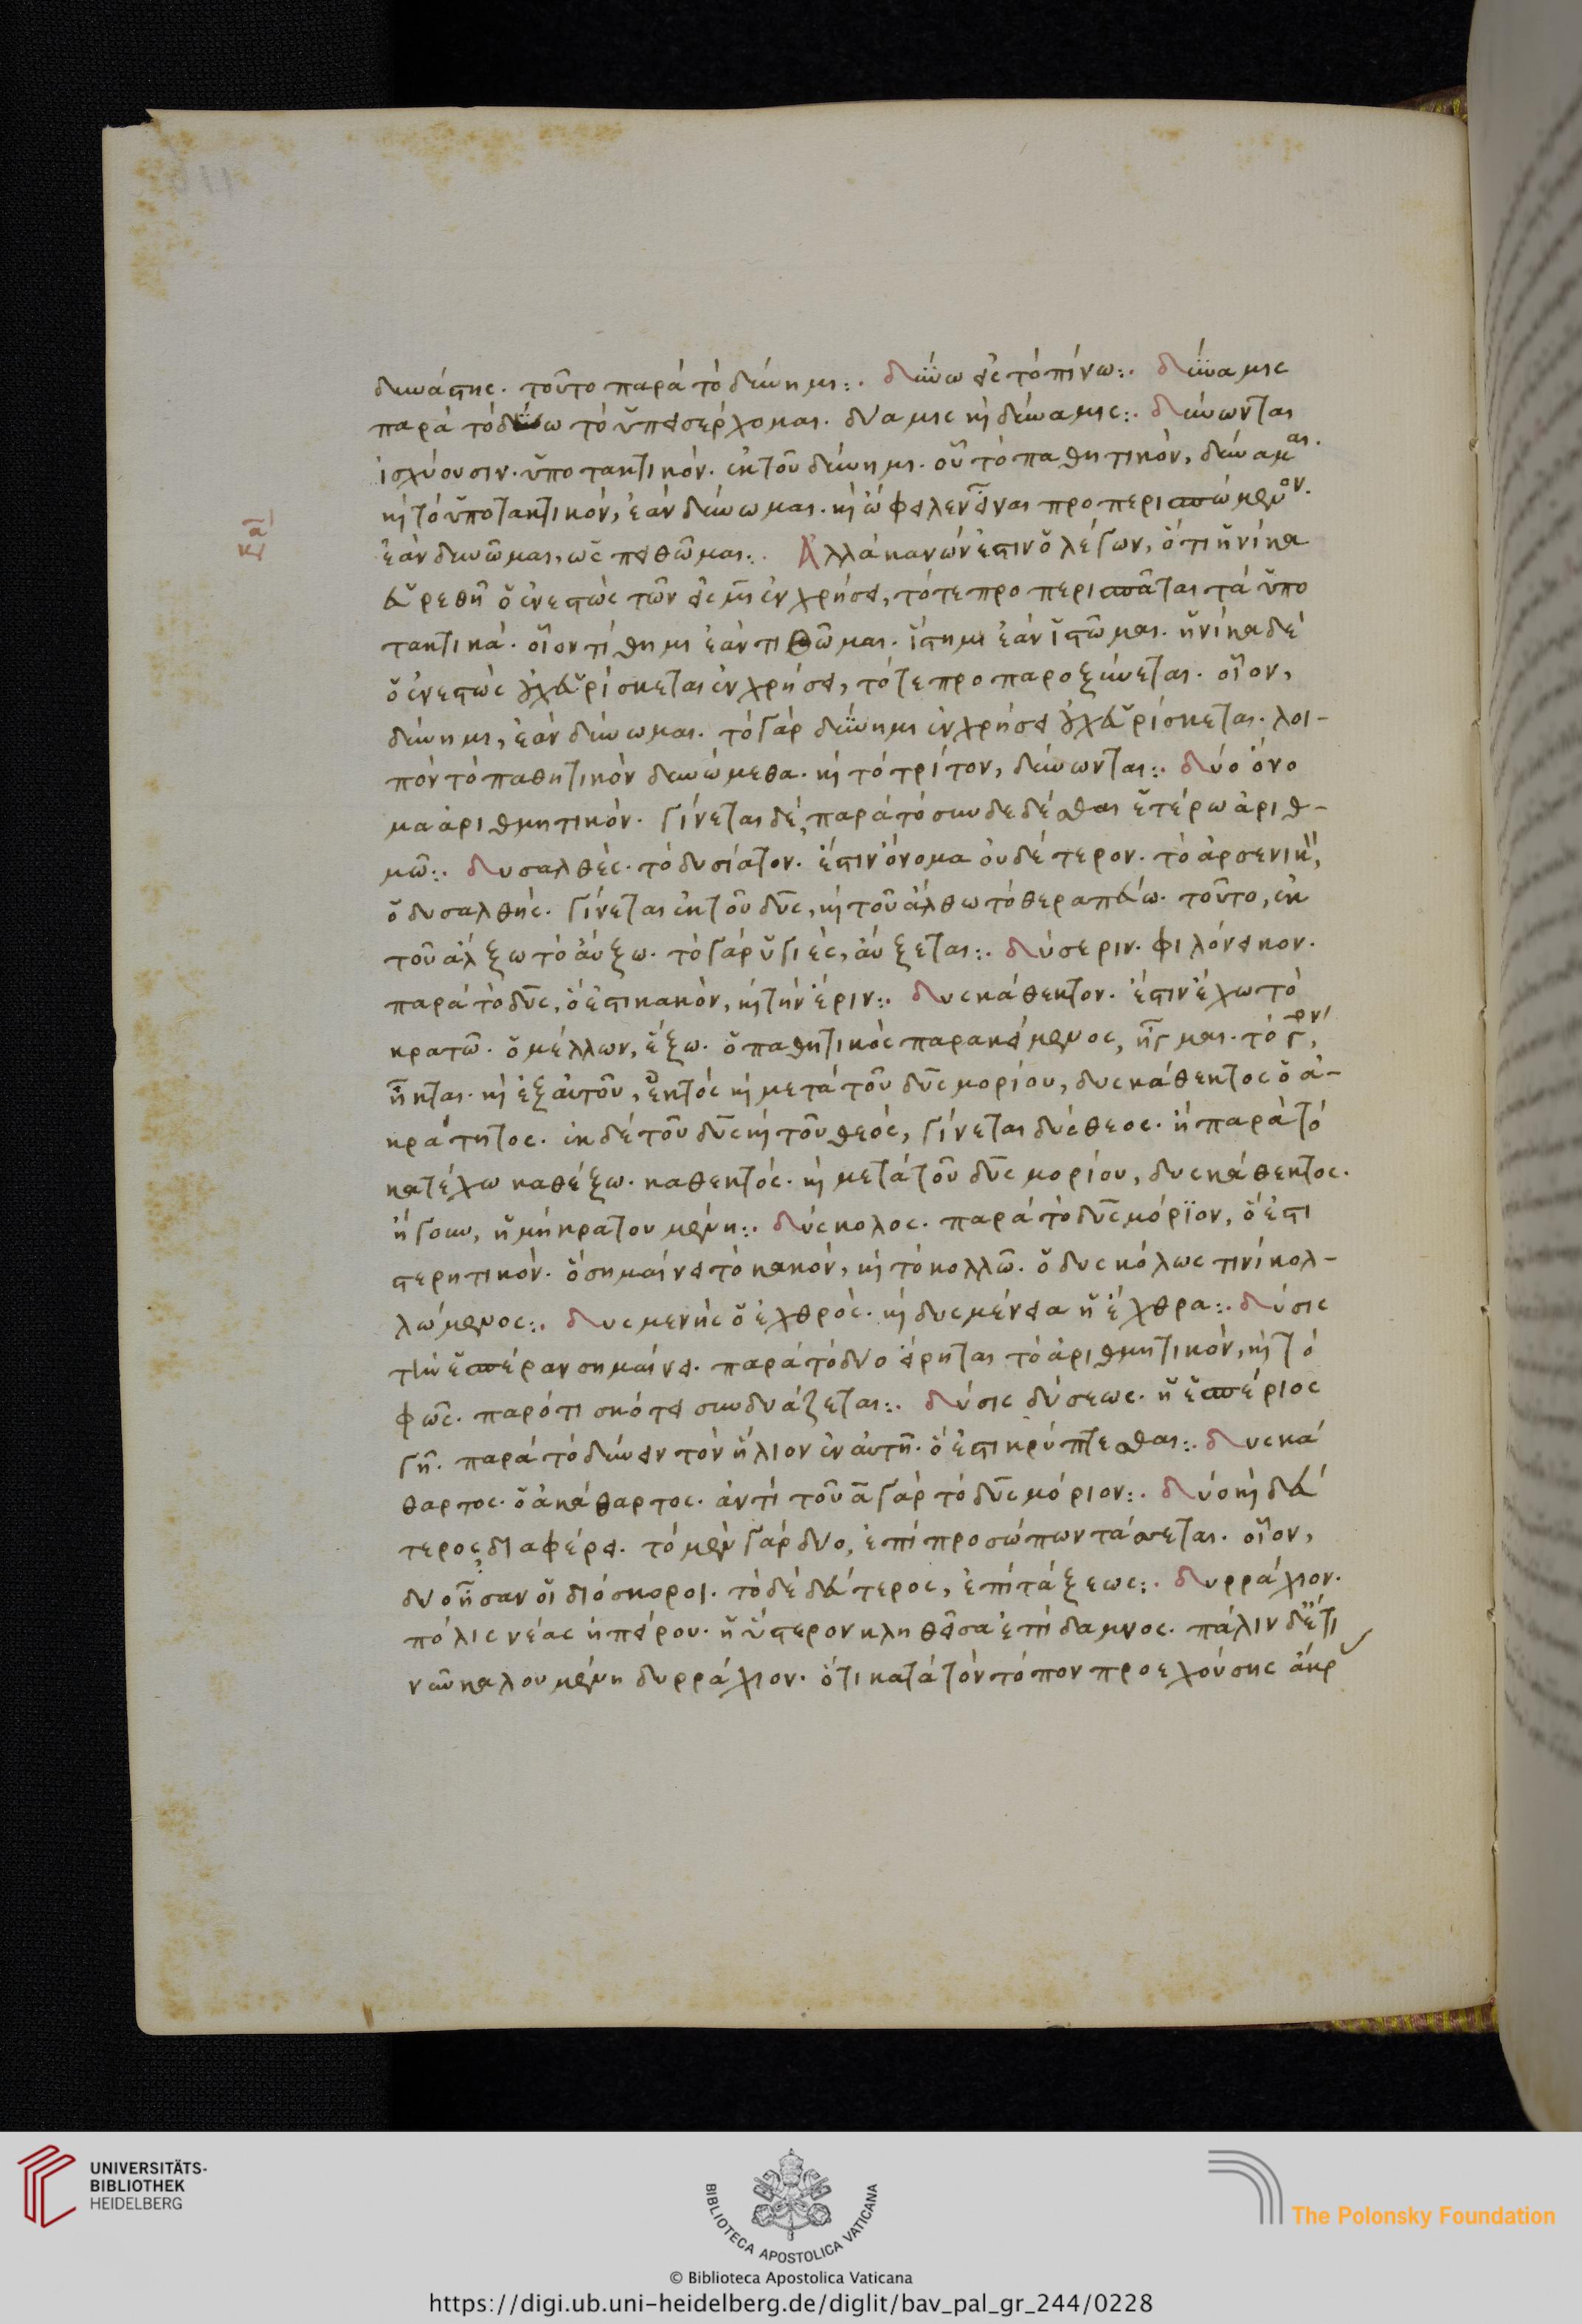 δυνάστης. τοῦτο παρὰ τὸ δύνημι:. δύνω εἰς τὸ πίνω:. δύναμις
παρὰ τὸ δύνω τὸ ὑπεισέρχομαι. δύαμις καὶ δύναμις:. δύνωνται
ἰσχύουσιν. ὑποτακτικόν. ἐκ τοῦ δύνημι. οὗ τὸ παθητικὸν, δύναμαι.
καὶ τὸ ὑποτακτικόν, ἐὰν δύνωμαι. καὶ ὤφειλεν εἶναι προπερισπώμενον.
ἐὰν δυνῶμαι, ὡς πειθῶμαι:. Ἀλλὰ κανών ἐστιν ὁ λέγων, ὅτι ἡνίκα
εὑρεθῆ ὁ ἐνεστὼς τῶν εἰς μι ἐν χρήσει, τότε προπερισπᾶται τὰ ὑπο
τακτικά. οἷον τίθημι ἐὰν τιθῶμαι. ἵστημι ἐὰν ἱστῶμαι. ἡνίκα δὲ
ὁ ἐνεστὼς οὐχ εὑρίσκεται ἐν χρήσει, τότε προπαροξύνεται. οἷον,
δύνημι, ἐὰν δύνωμαι. τὸ γὰρ δύνημι ἐν χρήσει οὐχ εὑρίσκεται. λοι-
πὸν τὸ παθητικὸν δυνώμεθα. καὶ τὸ τρίτον, δύνωνται:. δύο ὄνο
μα ἀριθμητικόν. γίνεται δὲ, παρὰ τὸ συνδεδέσθαι ἑτέρω ἀριθ-
μῶ:. δυσαλθές. τὸ δυσίατον. ἔστιν ὄνομα οὐδέτερον. τὸ ἀρσενικὸν,
ὁ δυσαλθής. γίνεται ἐκ τοῦ δυς, καὶ τοῦ ἄλθω τὸ θεραπεύω. τοῦτο, ἐκ
τοῦ ἀλξω τὸ αὔξω. τὸ γὰρ ὑγιὲς, αὔξεται:. δύσεριν. φιλόνεικον.
παρὰ τὸ δυς, ὅ ἐστι κακὸν, καὶ τὴν ἔριν:. δυσκάθεκτον. ἔστιν ἔχω τὸ
κρατῶ. ὁ μέλλων, ἕξω. ὁ παθητικὸς παρακείμενος, ἧγμαι. τὸ γ,
ἧκται. καὶ ἐξ αὐτοῦ, ἑκτός καὶ μετὰ τοῦ δυς μορίου, δυσκάθεκτος ὁ ἀ-
κράτητος. ἐκ δὲ τοῦ δυς καὶ τοῦ θεός, γίνεται δύσθεος. ἢ παρὰ τὸ
κατέχω καθέξω. καθεκτός. καὶ μετὰ τοῦ δυς μορίου, δυσκάθεκτος.
ἤγουν, ἡ μὴ κρατουμένη:. δύσκολος. παρὰ τὸ δυς μόριον, ὅ ἐστι
στερητικόν. ὃ σημαίνει τὸ κακόν, καὶ τὸ κολλῶ. ὁ δυσκόλως τινὶ κολ-
λώμενος:. δυσμενὴς ὁ ἐχθρός. καὶ δυσμένεια ἡ ἔχθρα:. δύσις
τὴν ἑσπέραν σημαίνει. παρὰ τὸ δύο εἴρηται τὸ ἀριθμητικόν, καὶ τὸ
φῶς. παρ ότι σκότει συνδυάζεται:. δύσις δύσεως. ἡ ἑσπέριος
γῆ. παρὰ τὸ δύνειν τὸν ἥλιον ἐν αὐτῆ. ὅ ἐστι κρύπτεσθαι:. δυσκά
θαρτος. ὁ ἀκάθαρτος. ἀντὶ τοῦ α γὰρ τὸ δυς μόριον:. δύο καὶ δεύ
τερος διαφέρει. τὸ μὲν γὰρ δύο, ἐπὶ προσώπων τάσσεται. οἷον,
δύο ἦσαν οἱ διόσκοροι. τὸ δὲ δεύτερος, ἐπὶ τάξεως:. δυρράχιον.
πόλις νέας ἠπείρου. ἡ ὕστερον κληθεῖσα ἐπίδαμνος. πάλιν δ' ἔτι
νῦν καλουμένη δυρράχιον. ὅτι κατὰ τὸν τόπον προεχούσης ἄκρ
UNIVERSITÄTS-
BIBLIOTHEK
HEIDELBERG
BIBLIOTECA APOSTOLICA VATICANA
The Polonsky Foundation
© Biblioteca Apostolica Vaticana
https://digi.ub.uni-heidelberg.de/diglit/bav_pal_gr_244/0228